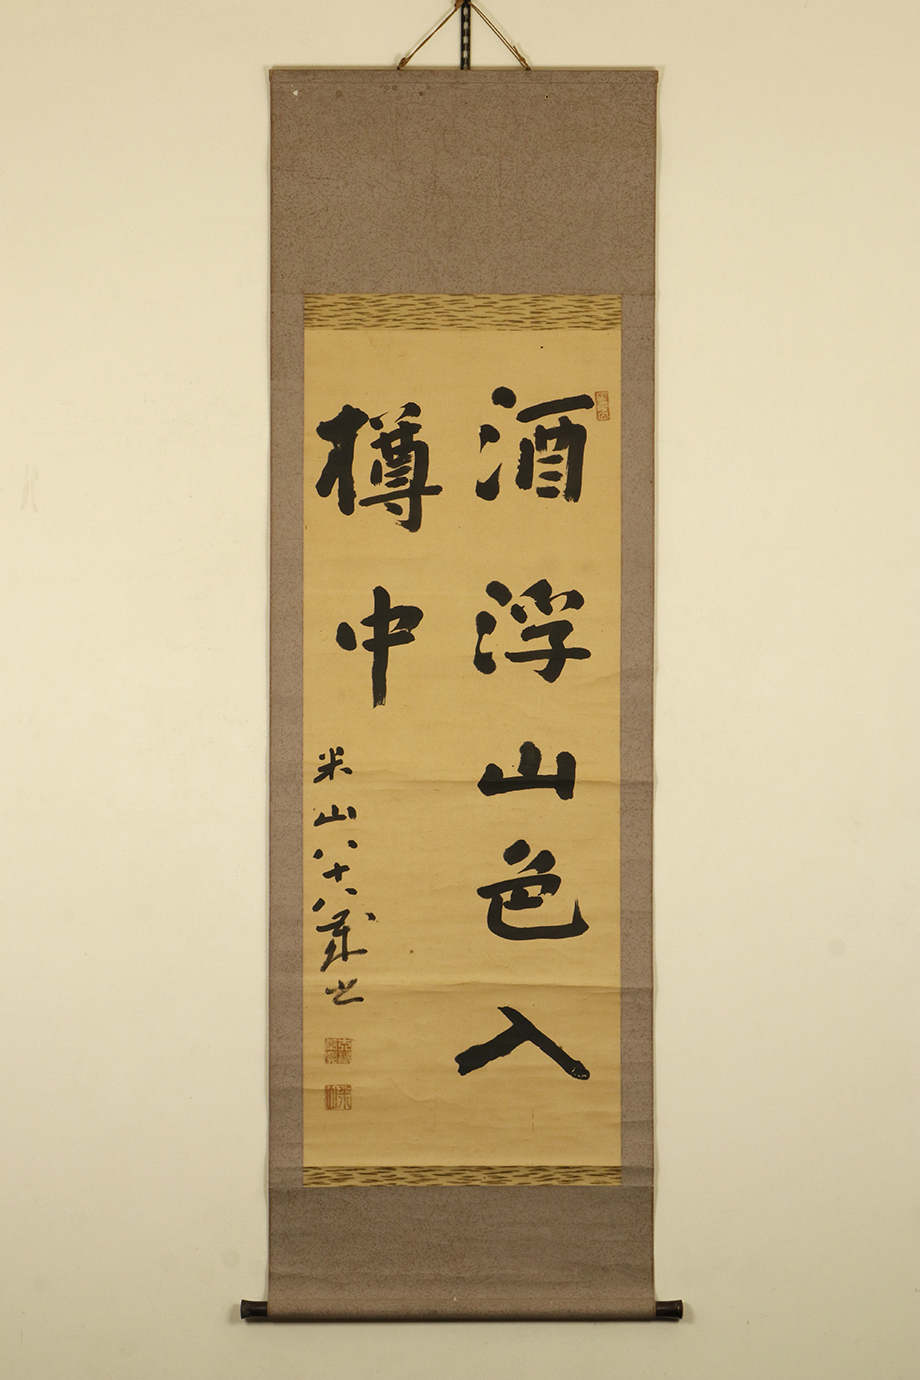 酒浮山色入
樽中
米山八十八歳書